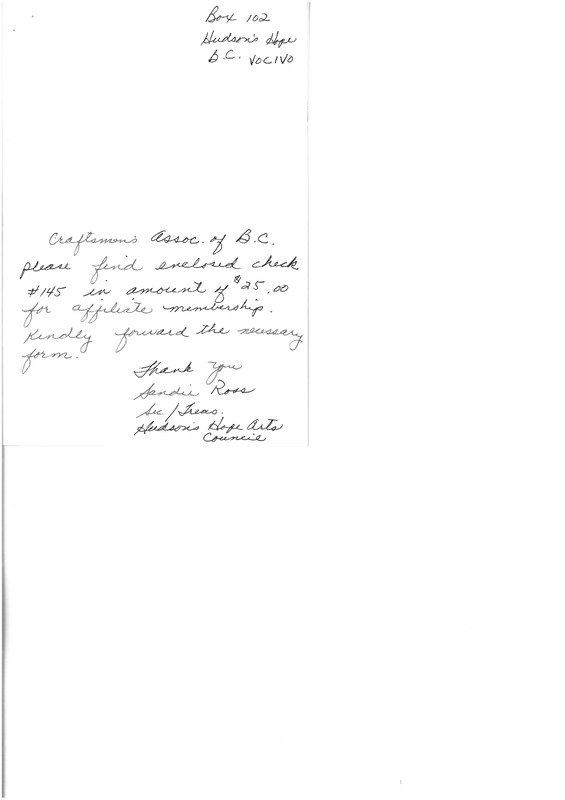 Box 102
Hudson's Hope
B.C. V0C1V0
Craftsmen's Assoc. of B.C.
please find enclosed check
#145 in amount of $25.00
for affiliate membership.
Kindly forward the necessary
form.
Thank You
Sandie Ross
Sec/Treas.
Hudson's Hope Arts
Council